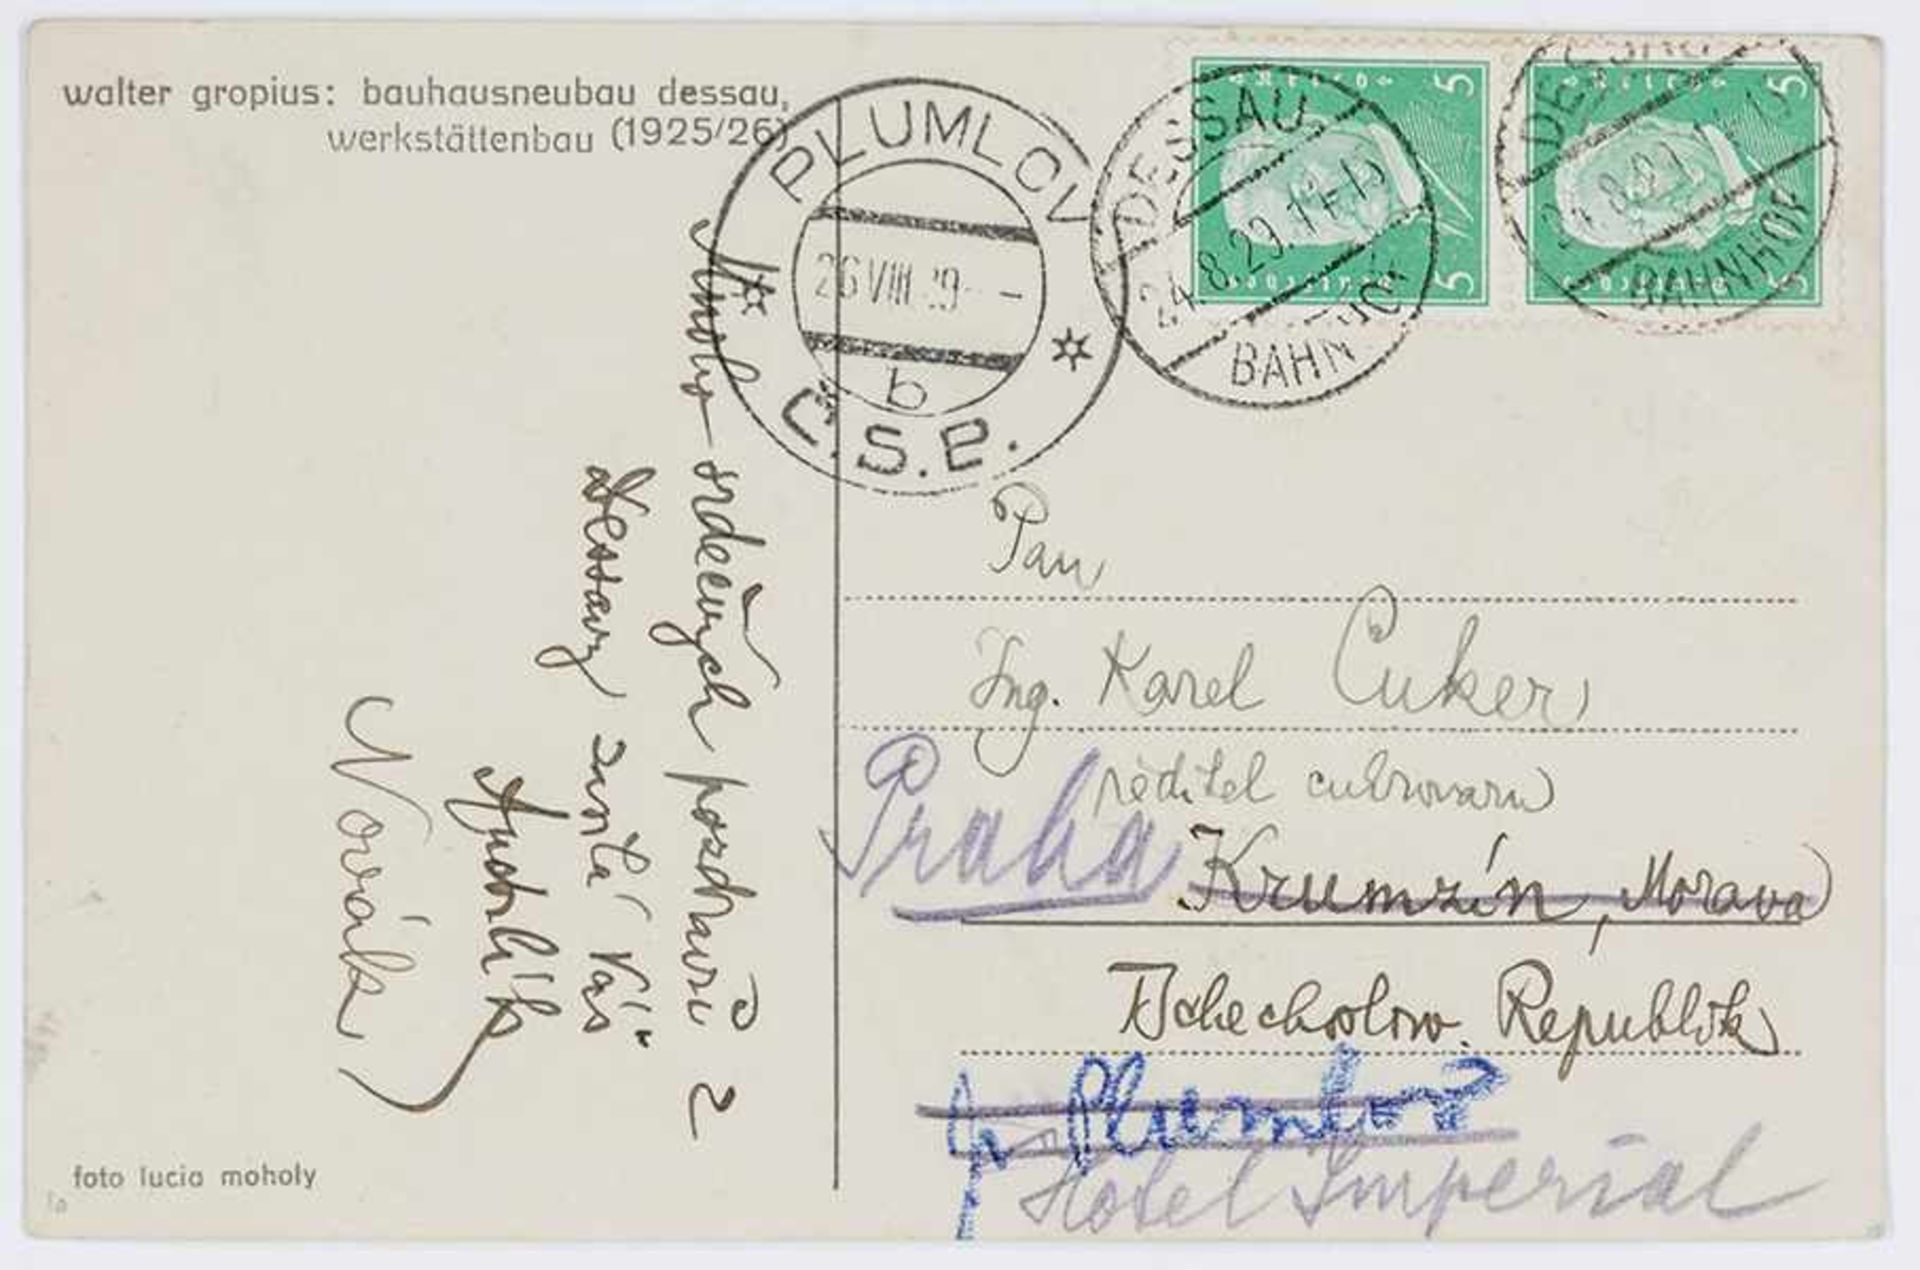 walter gropius: bauhausneubau dessau,
werkstättenbau (1925/26)
PLUMLOV
26 VIII 29
b
Č.S.P.
DESSAU
24.8.29.
BAHNHOF
DESSAU
BAHNHOF
5
5
5
5
Mnoho srdečných pozdravů z
Dessavy zasílá Vás
Novák
Pan
Ing. Karel Cuker
ředitel cukrovaru
Praha
Krumzín, Morava
Tschechoslow. Republik
p. Plumlov
Hotel Imperial
foto lucia moholy